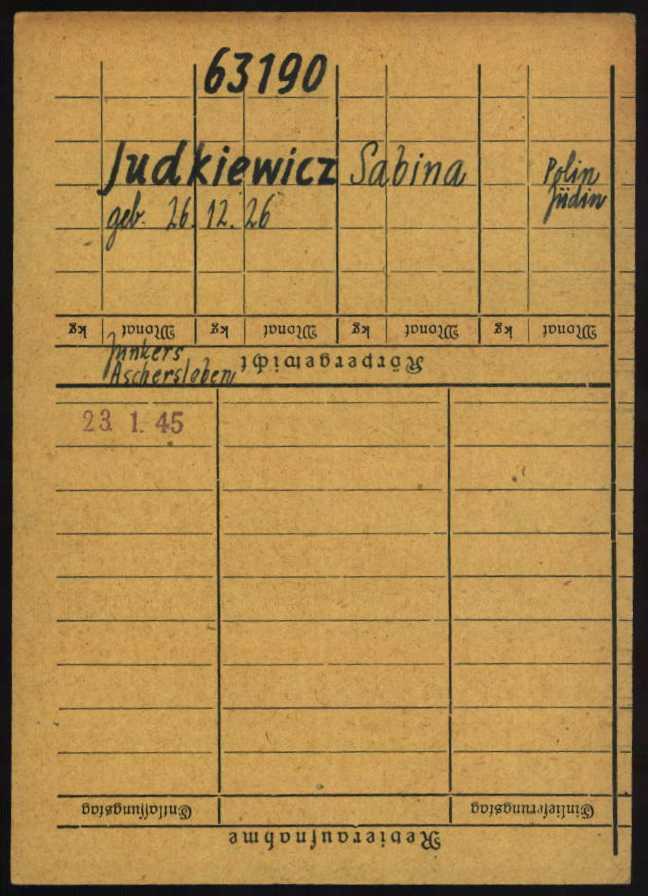 63190
Judkiewicz Sabina
Polin
Jüdin
geb. 26.12.26
Monat kg Monat kg Monat kg Monat kg
Körpergewicht
Junkers
Aschersleben
23. 1. 45
Einlieferungstag Entlassungstag
Revieraufnahme